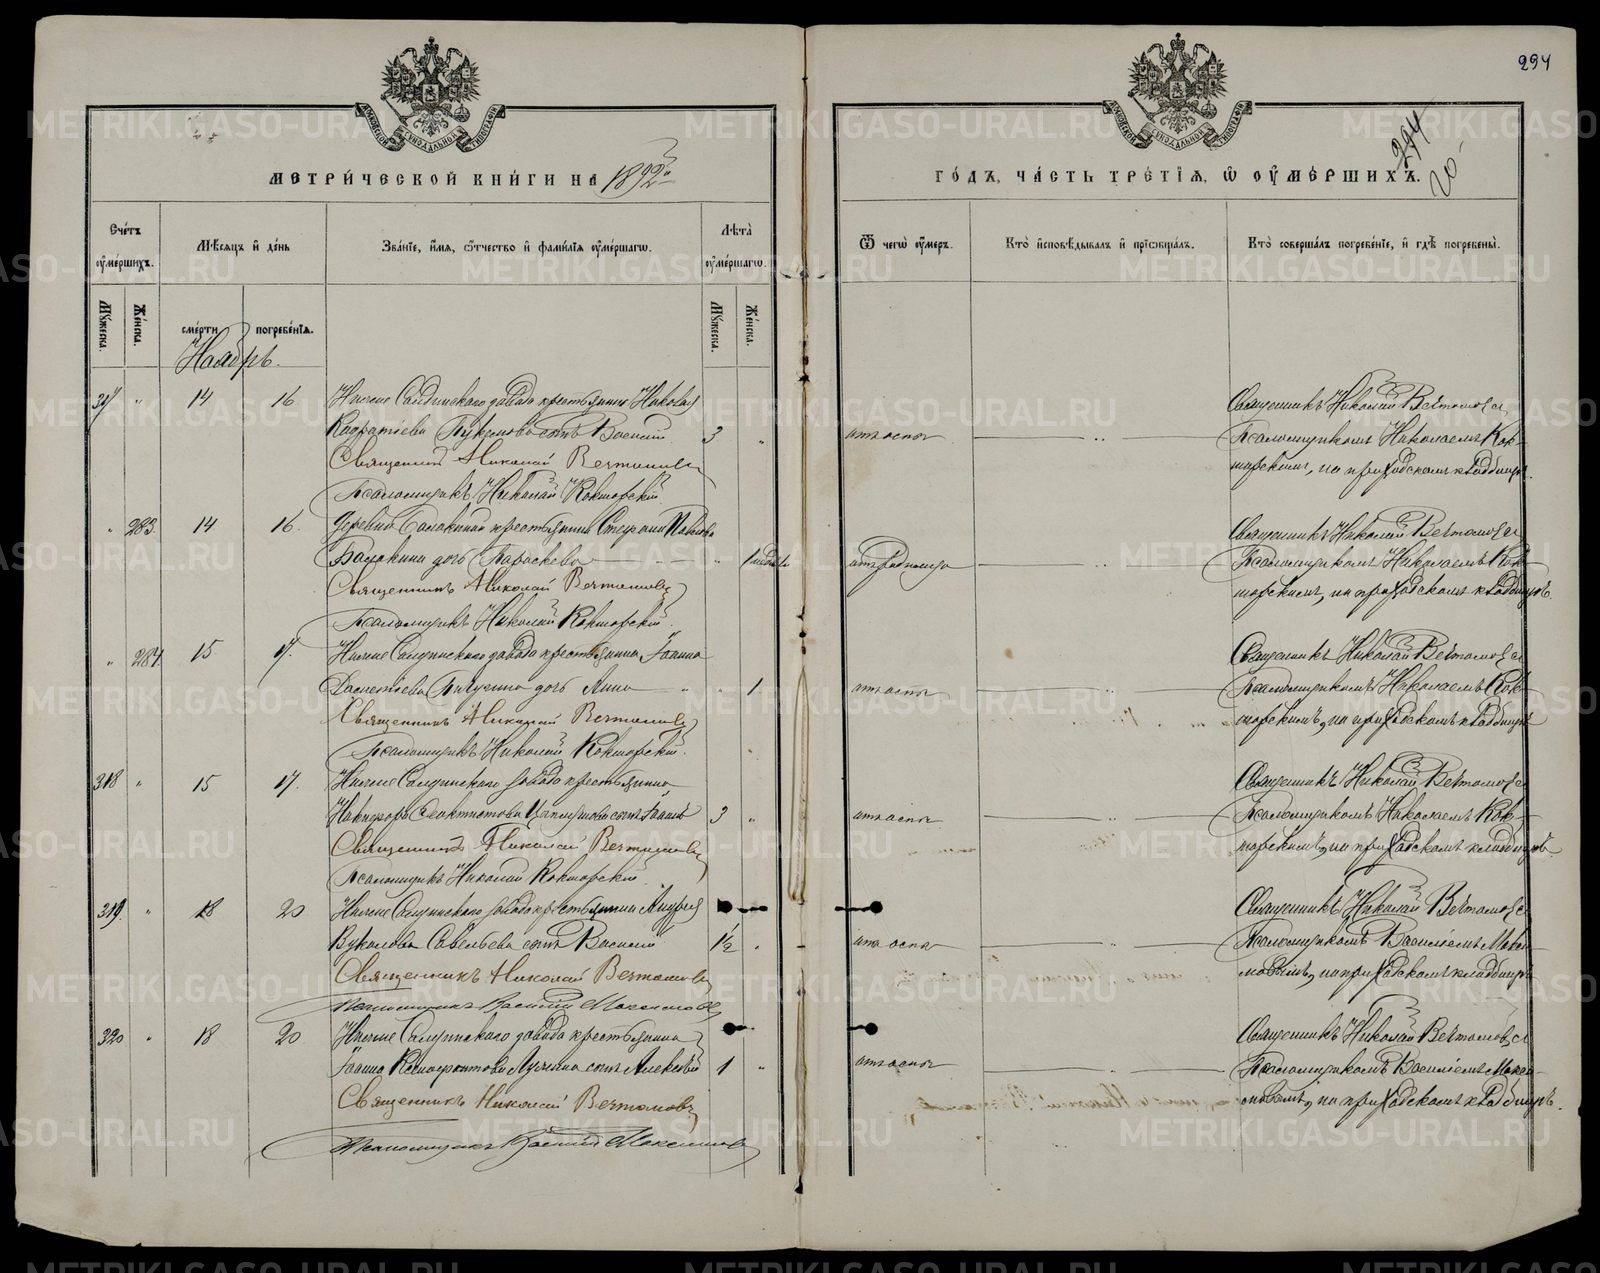 294
294
20
МЕТРИ́ЧЕСКОЙ КНИ́ГИ НА 1892й
ГО́ДЪ, ЧА́СТЬ ТРЕ́ТІЯ, Ѡ ОУ҆МЕ́РШИХЪ.
Сче́тъ оу҆ме́ршихъ.
Мѣ́сяцъ и҆ де́нь
Зва́ніе, и҆́мя, ѻ҆́тчество и҆ фами́лія оу҆ме́ршагѡ.
Лѣ́та оу҆ме́ршагѡ.
Ѿ чегѡ̀ оу҆́меръ.
Кто̀ и҆сповѣ́дывалъ и҆ прїѡбща́лъ.
Кто̀ соверша́лъ погребе́ніе, и҆ гдѣ̀ погребены̀.
Му́жеска.
Же́нска.
сме́рти
погребе́нія.
Му́жеска.
Же́нска.
Ноябрь.
317 " 14 16 Нижне Салдинскаго завода крестьянина Николая
сынъ Василий 3 " отъ оспы
Священникъ Николай Вечтомовъ
Псаломщикъ Николай Кокшарский
Священникъ Николай Вечтомовъ съ
Псаломщикомъ Николаемъ Кок-
шарскимъ, на приходскомъ кладбищѣ.
" 283. 14 16. Деревни Балакиной крестьянина Стефана Павлова
Балакина дочь Параскева " отъ родимца
Священникъ Николай Вечтомовъ
Псаломщикъ Николай Кокшарский.
Священникъ Николай Вечтомовъ съ
Псаломщикомъ Николаемъ Кок-
шарскимъ, на приходскомъ кладбищѣ.
" 284 15 17. Нижне Салдинскаго завода крестьянина Іоанна
дочь Анна " 1 отъ оспы
Священникъ Николай Вечтомовъ
Псаломщикъ Николай Кокшарский.
Священникъ Николай Вечтомовъ съ
Псаломщикомъ Николаемъ Кок-
шарскимъ, на приходскомъ кладбищѣ
318 " 15 17. Нижне Салдинскаго завода крестьянина
Никифора Феоктистова сынъ Іоаннъ 3 " отъ оспы
Священникъ Николай Вечтомовъ
Псаломщикъ Николай Кокшарский
Священникъ Николай Вечтомовъ съ
Псаломщикомъ Николаемъ Кок-
шарскимъ, на приходскомъ кладбищѣ.
319. " 18 20 Нижне Салдинскаго завода крестьянина Андрея
Вуколова Савельева сынъ Василий 1½ " отъ оспы
Священникъ Николай Вечтомовъ
Псаломщикъ Василий Максимовъ
Священникъ Николай Вечтомовъ съ
Псаломщикомъ Василиемъ Макси-
мовымъ, на приходскомъ кладбищѣ
320 " 18 20 Нижне Салдинскаго завода крестьянина
Іоанна сынъ Алексѣй 1 " отъ оспы
Священникъ Николай Вечтомовъ
Псаломщикъ Василий Максимовъ
Священникъ Николай Вечтомовъ съ
Псаломщикомъ Василиемъ Макси-
мовымъ, на приходскомъ кладбищѣ.
METRIKI.GASO-URAL.RU